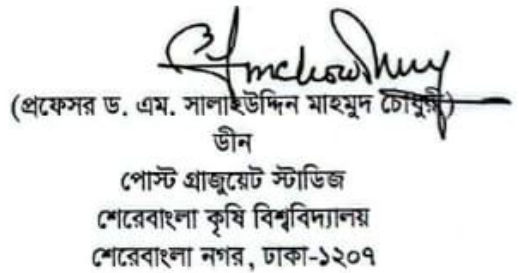 (প্রফেসর ড. এম. সালাহউদ্দিন মাহমুদ চৌধুরী)
ডীন
পোস্ট গ্রাজুয়েট স্টাডিজ
শেরেবাংলা কৃষি বিশ্ববিদ্যালয়
শেরেবাংলা নগর, ঢাকা-১২০৭